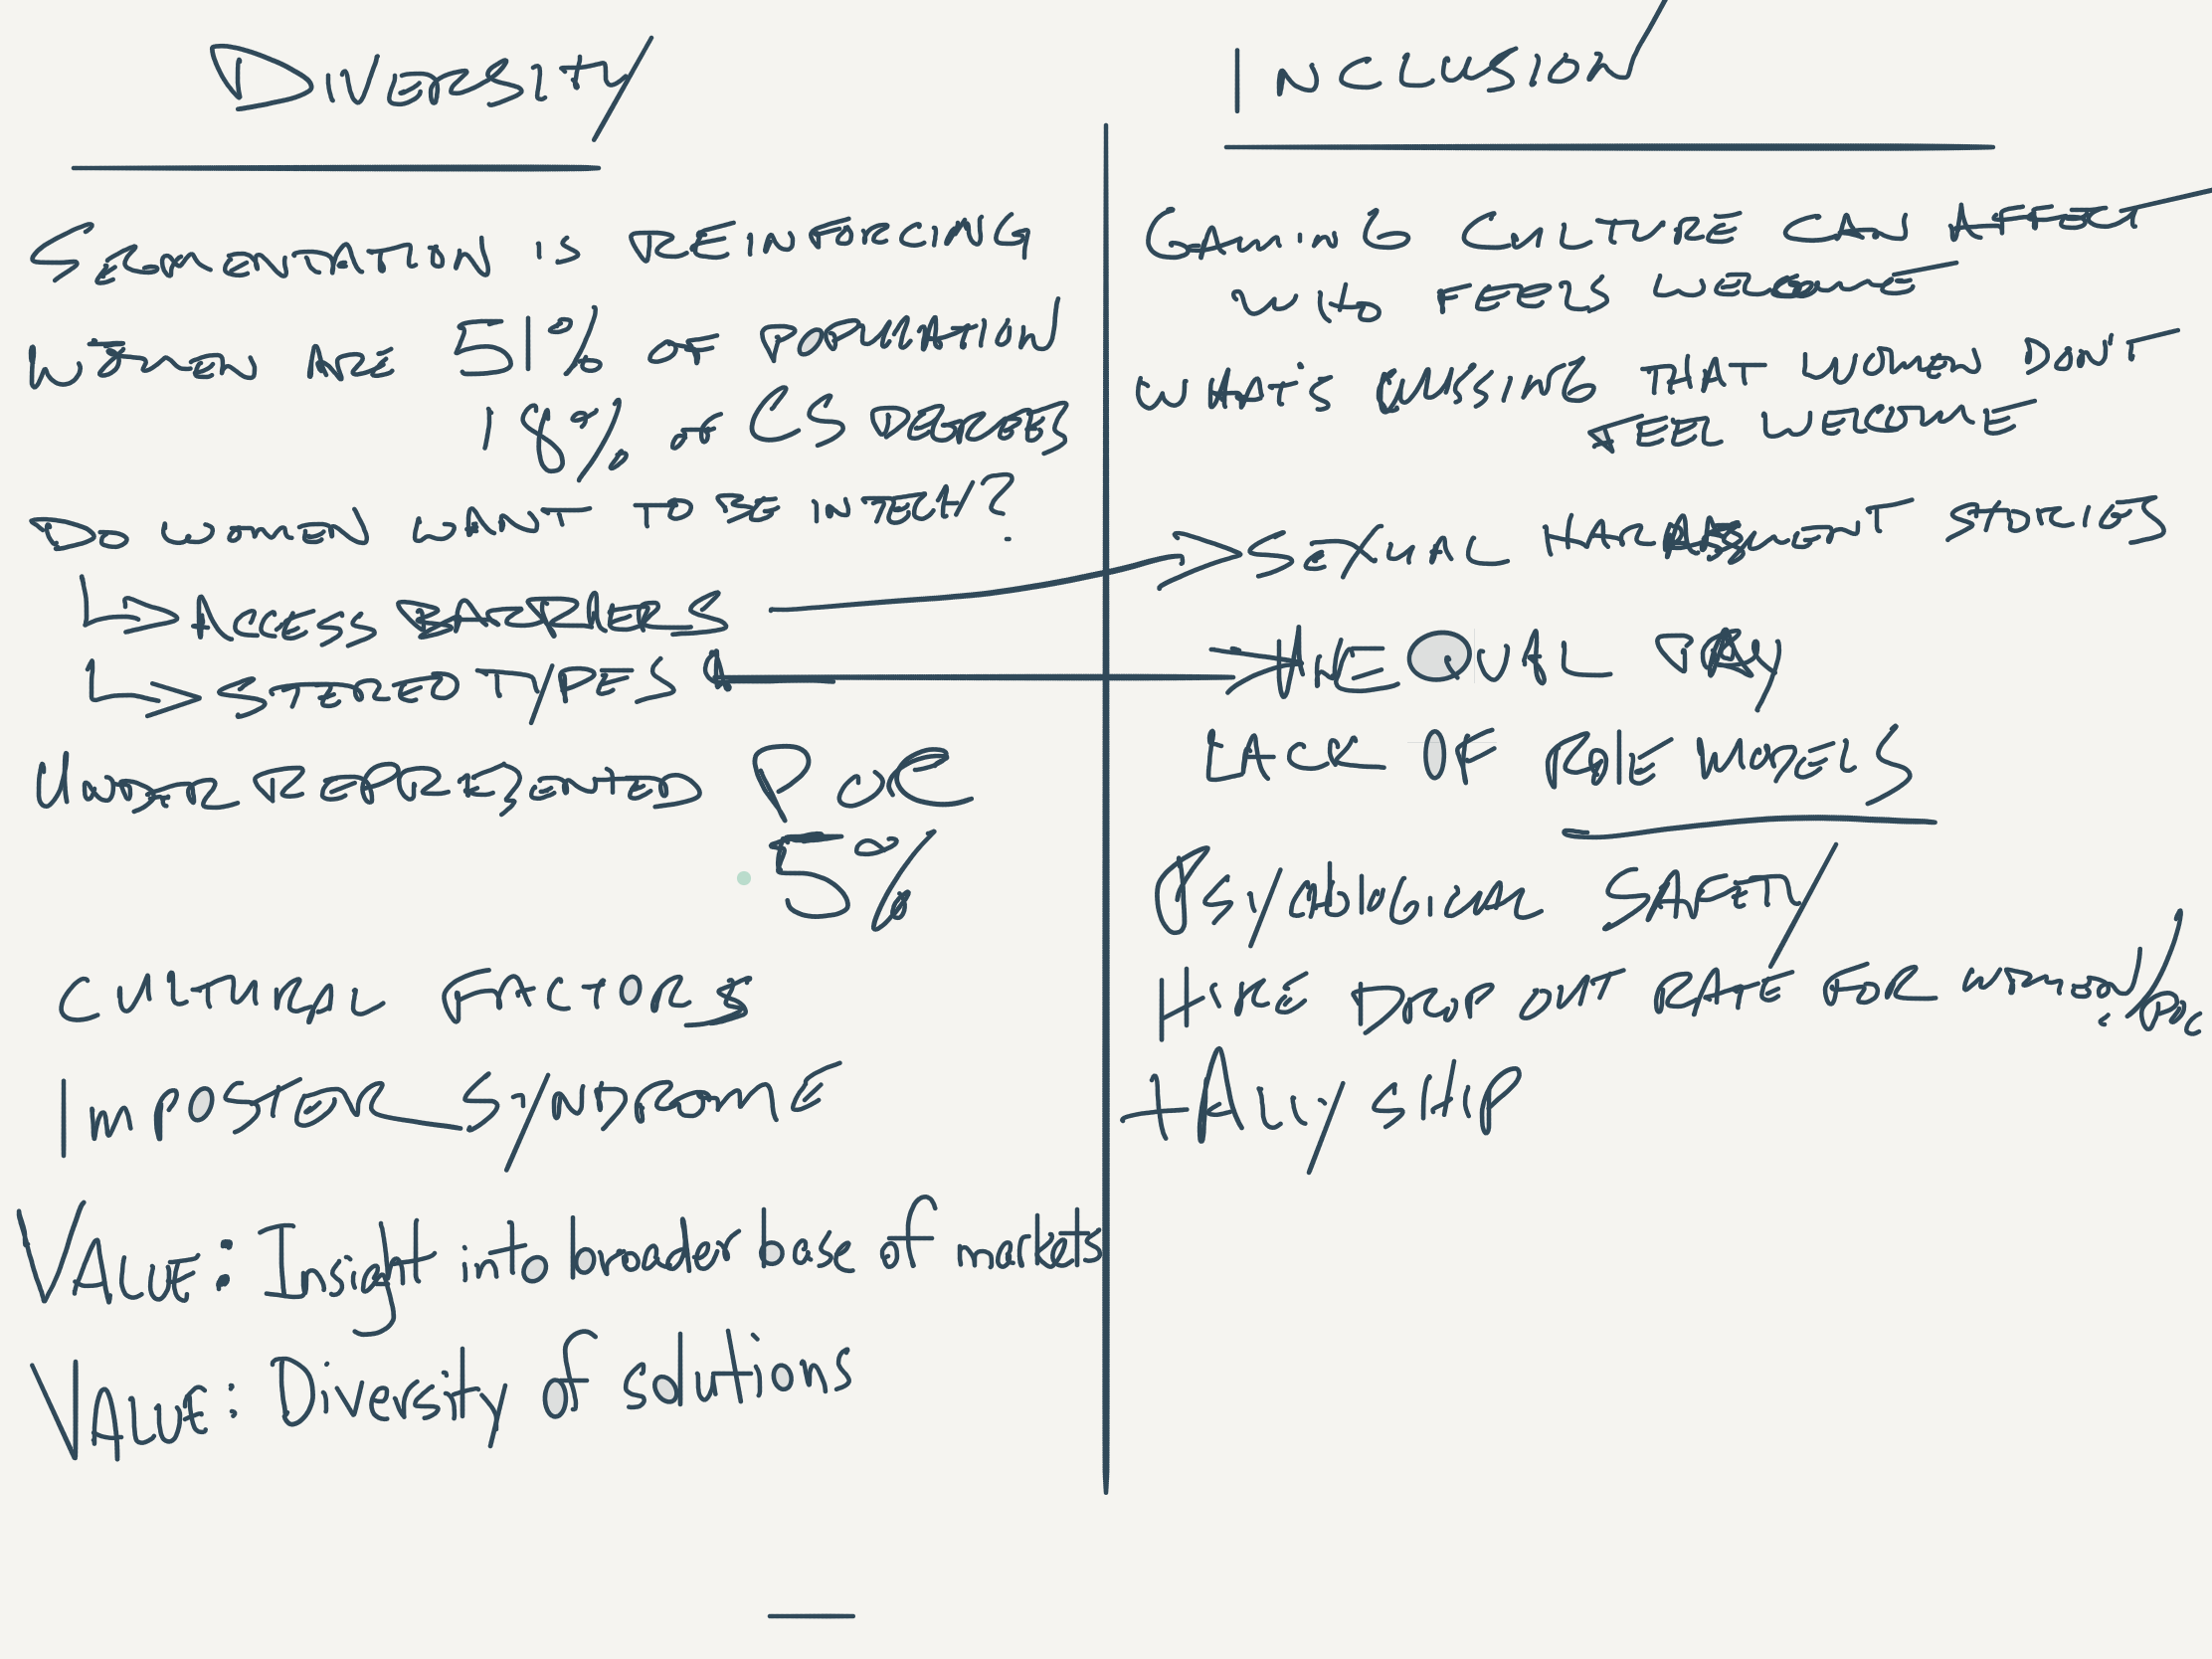 DIVERSITY
SEGMENTATION IS REINFORCING
WOMEN ARE 51% OF POPULATION
18% OF CS DEGREES
DO WOMEN WANT TO BE IN TECH?
ACCESS BARRIERS
STEREOTYPES
UNDER REPRESENTED POC
5%
CULTURAL FACTORS
IMPOSTER SYNDROME
VALUE: Insight into broader base of markets
VALUE: Diversity of solutions
INCLUSION
GAMING CULTURE CAN AFFECT
WHO FEELS WELCOME
WHAT'S MISSING THAT WOMEN DON'T
FEEL WELCOME
SEXUAL HARASSMENT STORIES
PAY
LACK OF ROLE MODELS
PSYCHOLOGICAL SAFETY
HIRE DROP OUT RATE FOR WOMEN/POC
ALLYSHIP